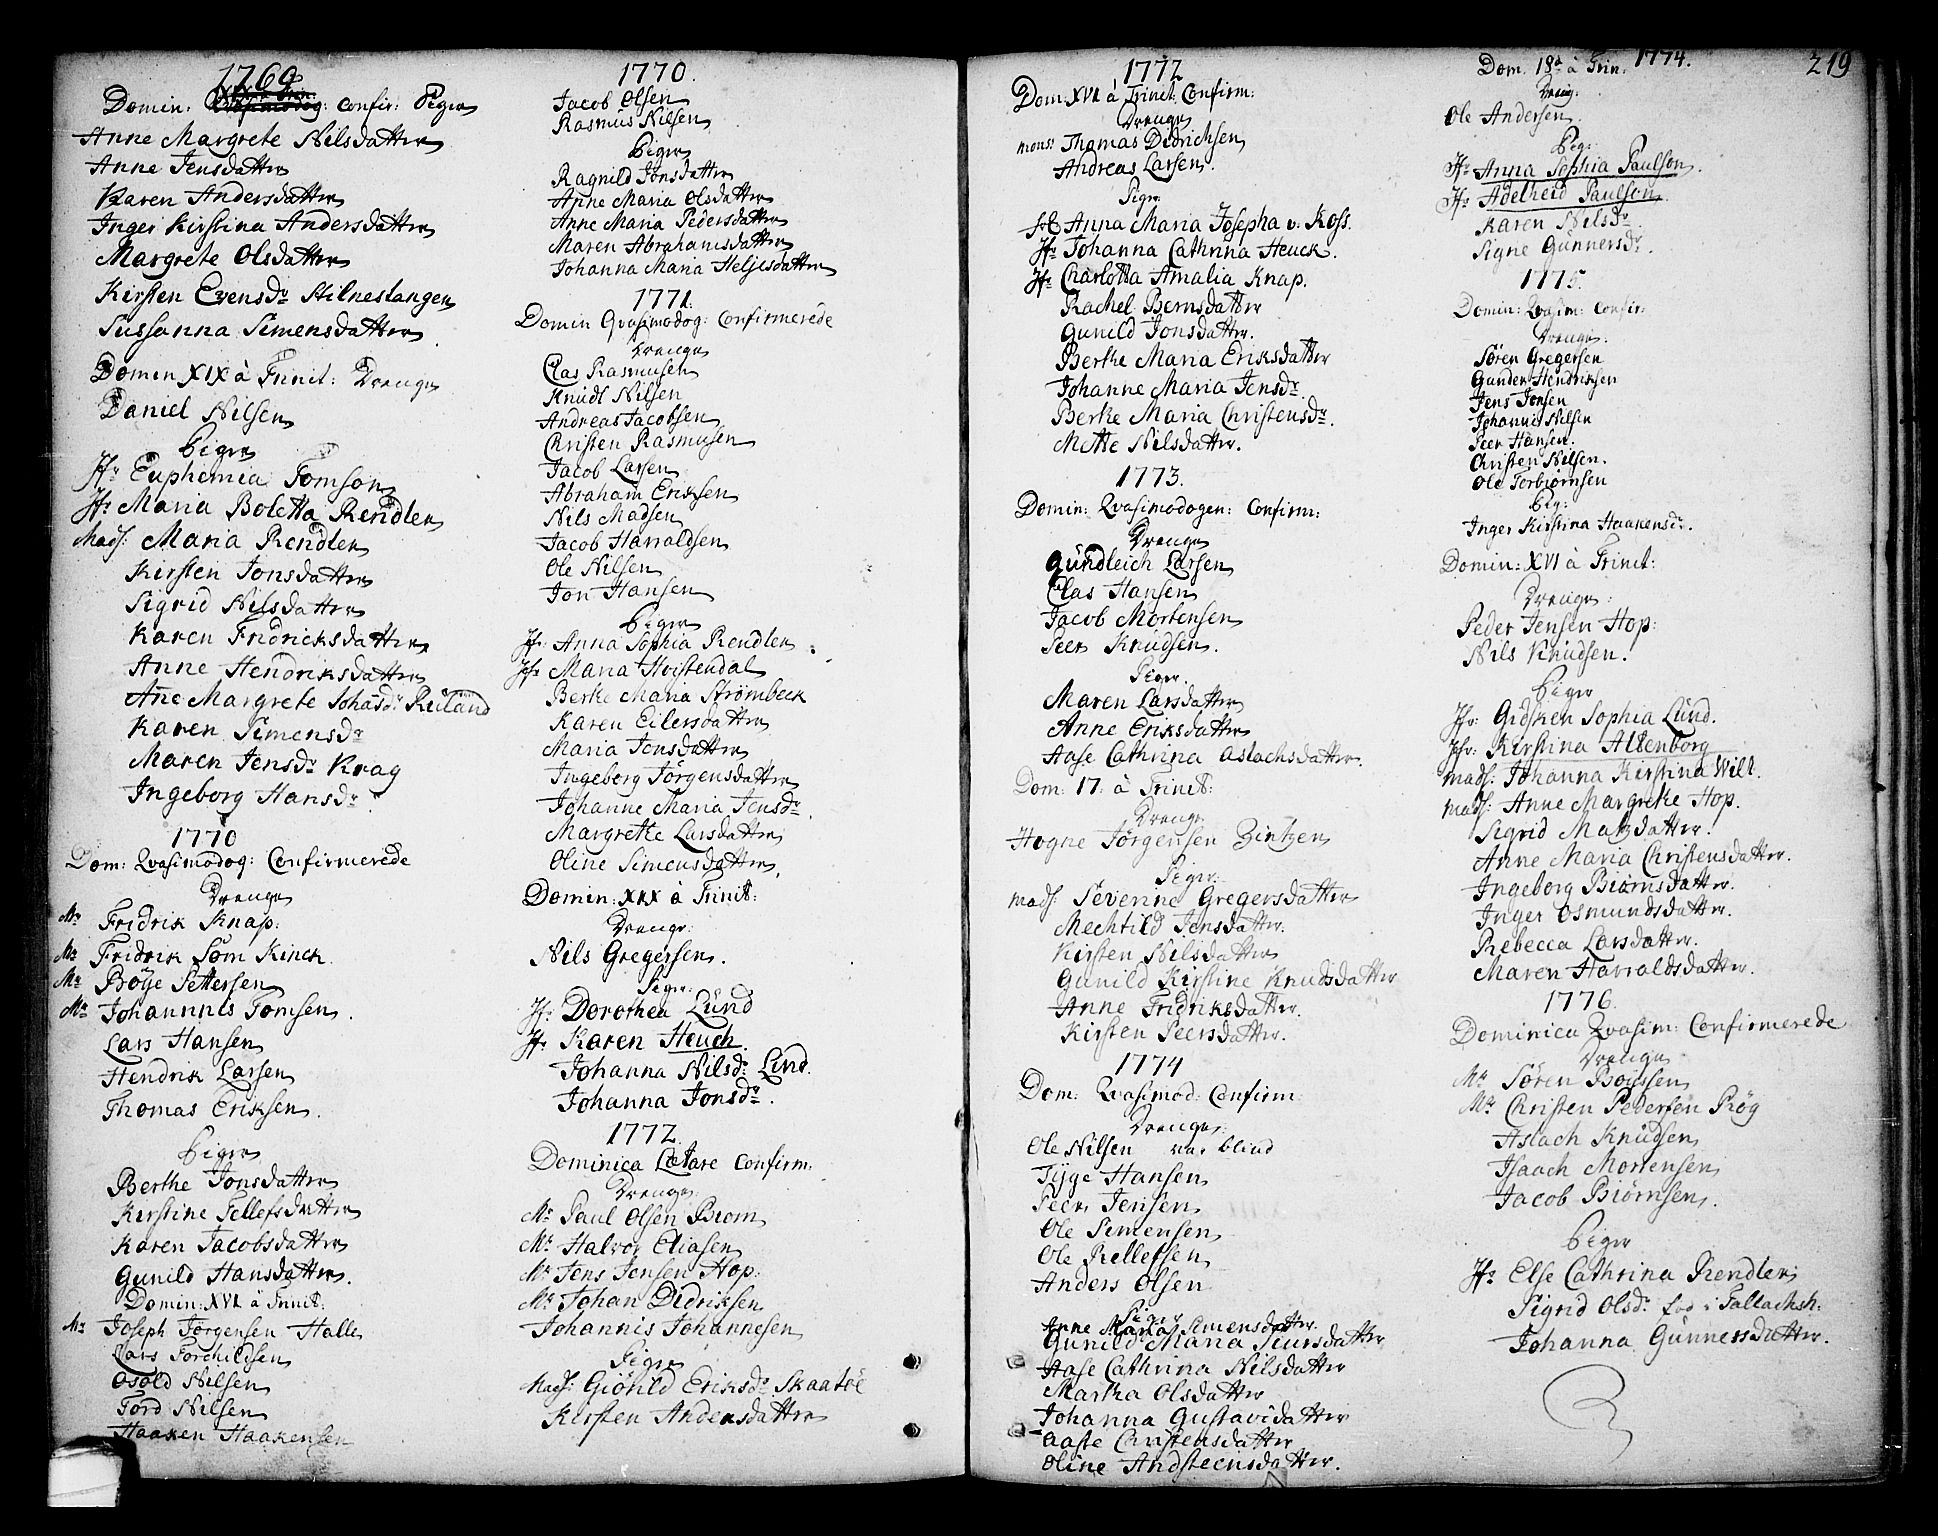 1769
Domin: confir: Piger
Anne Margrete Nilsdatter
Anne Jensdatter
Karen Andersdatter
Inger Kirstina Andersdatter
Margrete Olsdatter
Kirsten Evensdr Stilnestangen
Sussanna Simensdatter
Domen XIX à Trinit: Drenge
Daniel Nilsen
Piger
Jfr Euphemia Tomson
Jfr Maria Boletta Rendler
Mads: Maria Rendler
Kirsten Jonsdatter
Sigrid Nilsdatter
Karen Fridricksdatter
Anne Hendriksdatter
Añe Margrete Johasdr Reiland
Karen Simensdr
Maren Jensdr Krag
Ingeborg Hansdr
1770
Dom: Qvasimodog: Confirmerede
Drenge
Mr Fridrik Knap:
Mr Fridrik Som Kinck
Mr Böÿe Pettersen
Mr Johannnis Tomsen.
Lars Hansen
Hendrik Larsen
Thomas Eriksen.
Piger
Berthe Jonsdatter
Kirstine Tellefsdatter
Karen Jacobsdatter
Gunild Hansdatter.
Domin: XVI à Trinit:
Mr Joseph Jörgensen Halle
Lars Torchildsen
Osold Nilsen
Tord Nilsen
Haaken Haakensen
1770.
Jacob Olsen
Rasmus Nilsen
Piger
Ragnild Jonsdatter
Anne Maria Olsdatter
Anne Maria Pedersdatter
Maren Abrahamsdatter
Johanna Maria Heljesdatter
1771.
Domin Qvasimodog: Confirmerede
Drenge
Clas Rasmusen
Knudt Nilsen
Andreas Jacobsen
Christen Rasmusen
Jacob Larsen
Abraham Eriksen
Nils Madsen
Jacob Harraldsen
Ole Nilsen
Jon Hansen
Piger
Jfr: Anna Sophia Rendler
Jfr Maria Hvistendal
Berthe Maria Strömbeck
Karen Eilersdatter
Maria Jensdatter
Ingeborg Jörgensdatter
Johanne Maria Jensdr.
Margrethe Larsdatter
Oline Simensdatter,
Domin: XIX à Trinit:
Drenge:
Nils Gregersen.
Piger:
Jfr Dorothea Lund
Jfr Karen Heuch.
Johanna Nilsdr Lind.
Johanna Jonsdr.
1772.
Dominica Lætare Confirm:
Drenge
Mr Paul Olsen Biorn
Mr Halvor Eliasen
Mr Jens Jensen Hop:
Mr Johan Didriksen
Johannis Johannesen
Piger
Mads: Giörild Eriksdr Skaatöe
Kirsten Andersdatter
1772
Dom: XVI à Trinit: Confirm:
Drenge
mons: Thomas Didrichsen
Andreas Larsen.
Piger
Anna Maria Josepha v: Koss.
Jfr Johanna Cathrina Heuck.
Jfr Charlotta Amalia Knap.
Rachel Bernsdatter
Gunild Jonsdatter.
Berthe Maria Eriksdatter
Johanne Maria Jensdr.
Berke Maria Christensdr.
Mette Nilsdatter.
1773.
Domin: Qvasimodogen: Confirm:
Drenge
Gundleich Larsen
Clas Hansen
Jacob Mortensen
Peer Knudsen.
Piger.
Maren Larsdatter
Anne Eriksdatter
Aase Cathrina Aslachsdatter.
Dom: 17: à Trinit:
Drenge
Hogne Jörgensen Zintzen
Piger:
mads: Severine Gregersdatter
Mechtild Jensdatter.
Kirsten Nilsdatter
Gunild Kirstine Knudsdatter
Anne Fridriksdatter.
Kirsten Peersdatter.
1774
Dom: Qvasimod: Confirm:
Drenge:
Ole Nilsen var blind
Tÿge Hansen
Peer Jensen
Ole Simensen
Ole Rellefsen
Anders Olsen
Piger
Anne Maria Simensdatter.
Gunild Maria Siursdatter
Aase Cathrina Nilsdatter
Martha Olsdatter
Johanna Gustavidatter
Aaste Christensdatter
Oline Andsteensdatter.
Dom. 18de à Trin. 1774. 219
Dreng:
Ole Andersen
Pig:
Jfr Anna Sophia Paulson.
Jfr Adelheid Paulson
Karen Nilsdr
Signe Gunnersdr.
1775.
Domin: Qvasim: Confir:
Drenge:
Sören Gregersen
Gunder Hendriksen
Jens Jonsen
Johannes Nilsen
Peer Hansen.
Christen Nilsen.
Ole Torbiörnsen
Pig:
Inger Kirstina Haakensdr.
Domin: XVI à Trinit:
Drenge:
Peder Jensen Hop:
Nils Knudsen.
Piger
Jfr: Gidsken Sophia Lund.
Jfr: Kirstina Altenborg
mads: Johanna Kirstina Will.
mads: Anne Margrethe Hop.
Sigrid Matzdatter.
Anne Maria Christensdatter.
Ingeborg Biörnsdatter.
Inger Osmundsdatter.
Rebecca Larsdatter.
Maren Harraldsdatter.
1776.
Dominica Qvasim: Confirmerede
Drenge
Mr Sören Boyssen
Mr Christen Pedersen Rög
Aslach Knudsen
Isaach Mortensen
Jacob Biörnsen.
Piger
Jfr Else Cathrina Rendler
Sigrid Olsdr
Johanna Gunnersdatter.